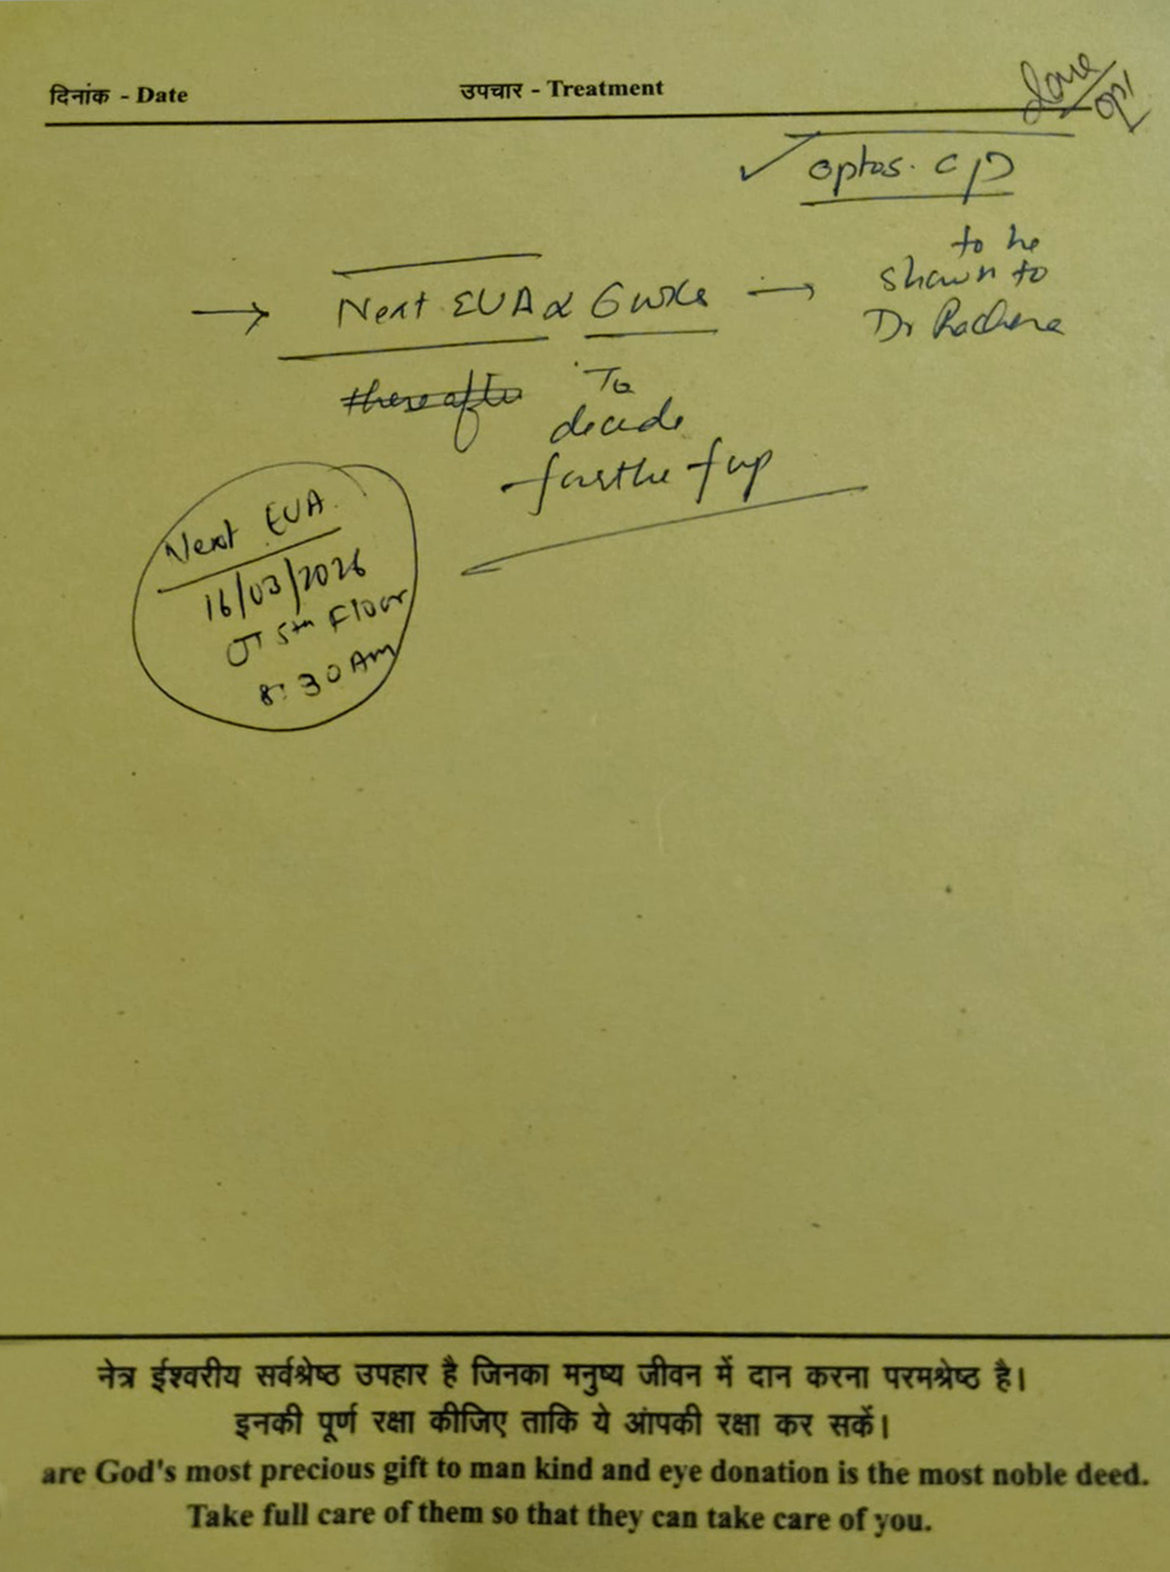 दिनांक - Date
उपचार - Treatment
Done
optos. c/D
→ Next EUA α 6 wks →
to be
shown to
Dr Rachna
thereafter
To
decide
further fup
Next EUA
16/03/2026
OT 5th Floor
8:30 Am
नेत्र ईश्वरीय सर्वश्रेष्ठ उपहार है जिनका मनुष्य जीवन में दान करना परमश्रेष्ठ है।
इनकी पूर्ण रक्षा कीजिए ताकि ये आंपकी रक्षा कर सकें।
are God's most precious gift to man kind and eye donation is the most noble deed.
Take full care of them so that they can take care of you.